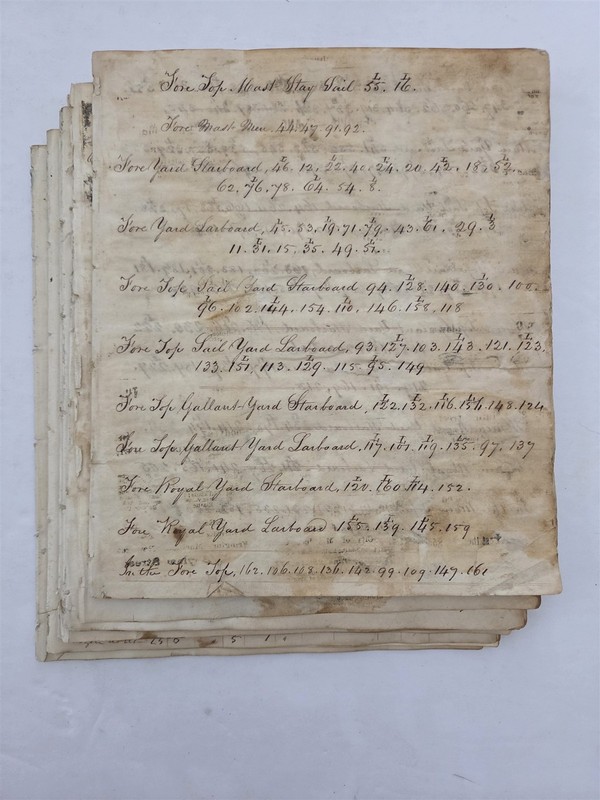 Fore Top. Mast Stay Sail 55. 16.
Fore Mast Men. 44. 47. 91. 92.
Fore Yard Starboard, 46. 12, 22. 40. 24. 20. 42. 18. 52
62. 76. 78. 64. 54. 8.
Fore Yard Larboard, 45. 53. 19. 71. 79. 43. 61. 29. 3
11. 31. 15. 35. 49. 51.
Fore Top Sail Yard Starboard 94. 128. 140. 130. 100.
96. 102. 144. 154. 110. 146. 158. 118
Fore Top Sail Yard Larboard, 93. 127. 103. 143. 121. 123.
133. 151. 113. 129. 115. 95. 149
Fore Top Gallant Yard Starboard, 122. 132. 116. 156. 148. 124
Fore Top Gallant Yard Larboard, 117. 101. 119. 135. 97. 137
Fore Royal Yard Starboard, 120. 160. 114. 152.
Fore Royal Yard Larboard 155. 139. 145. 159
In the Fore Top, 162. 106. 108. 136. 142. 99. 109. 147. 161